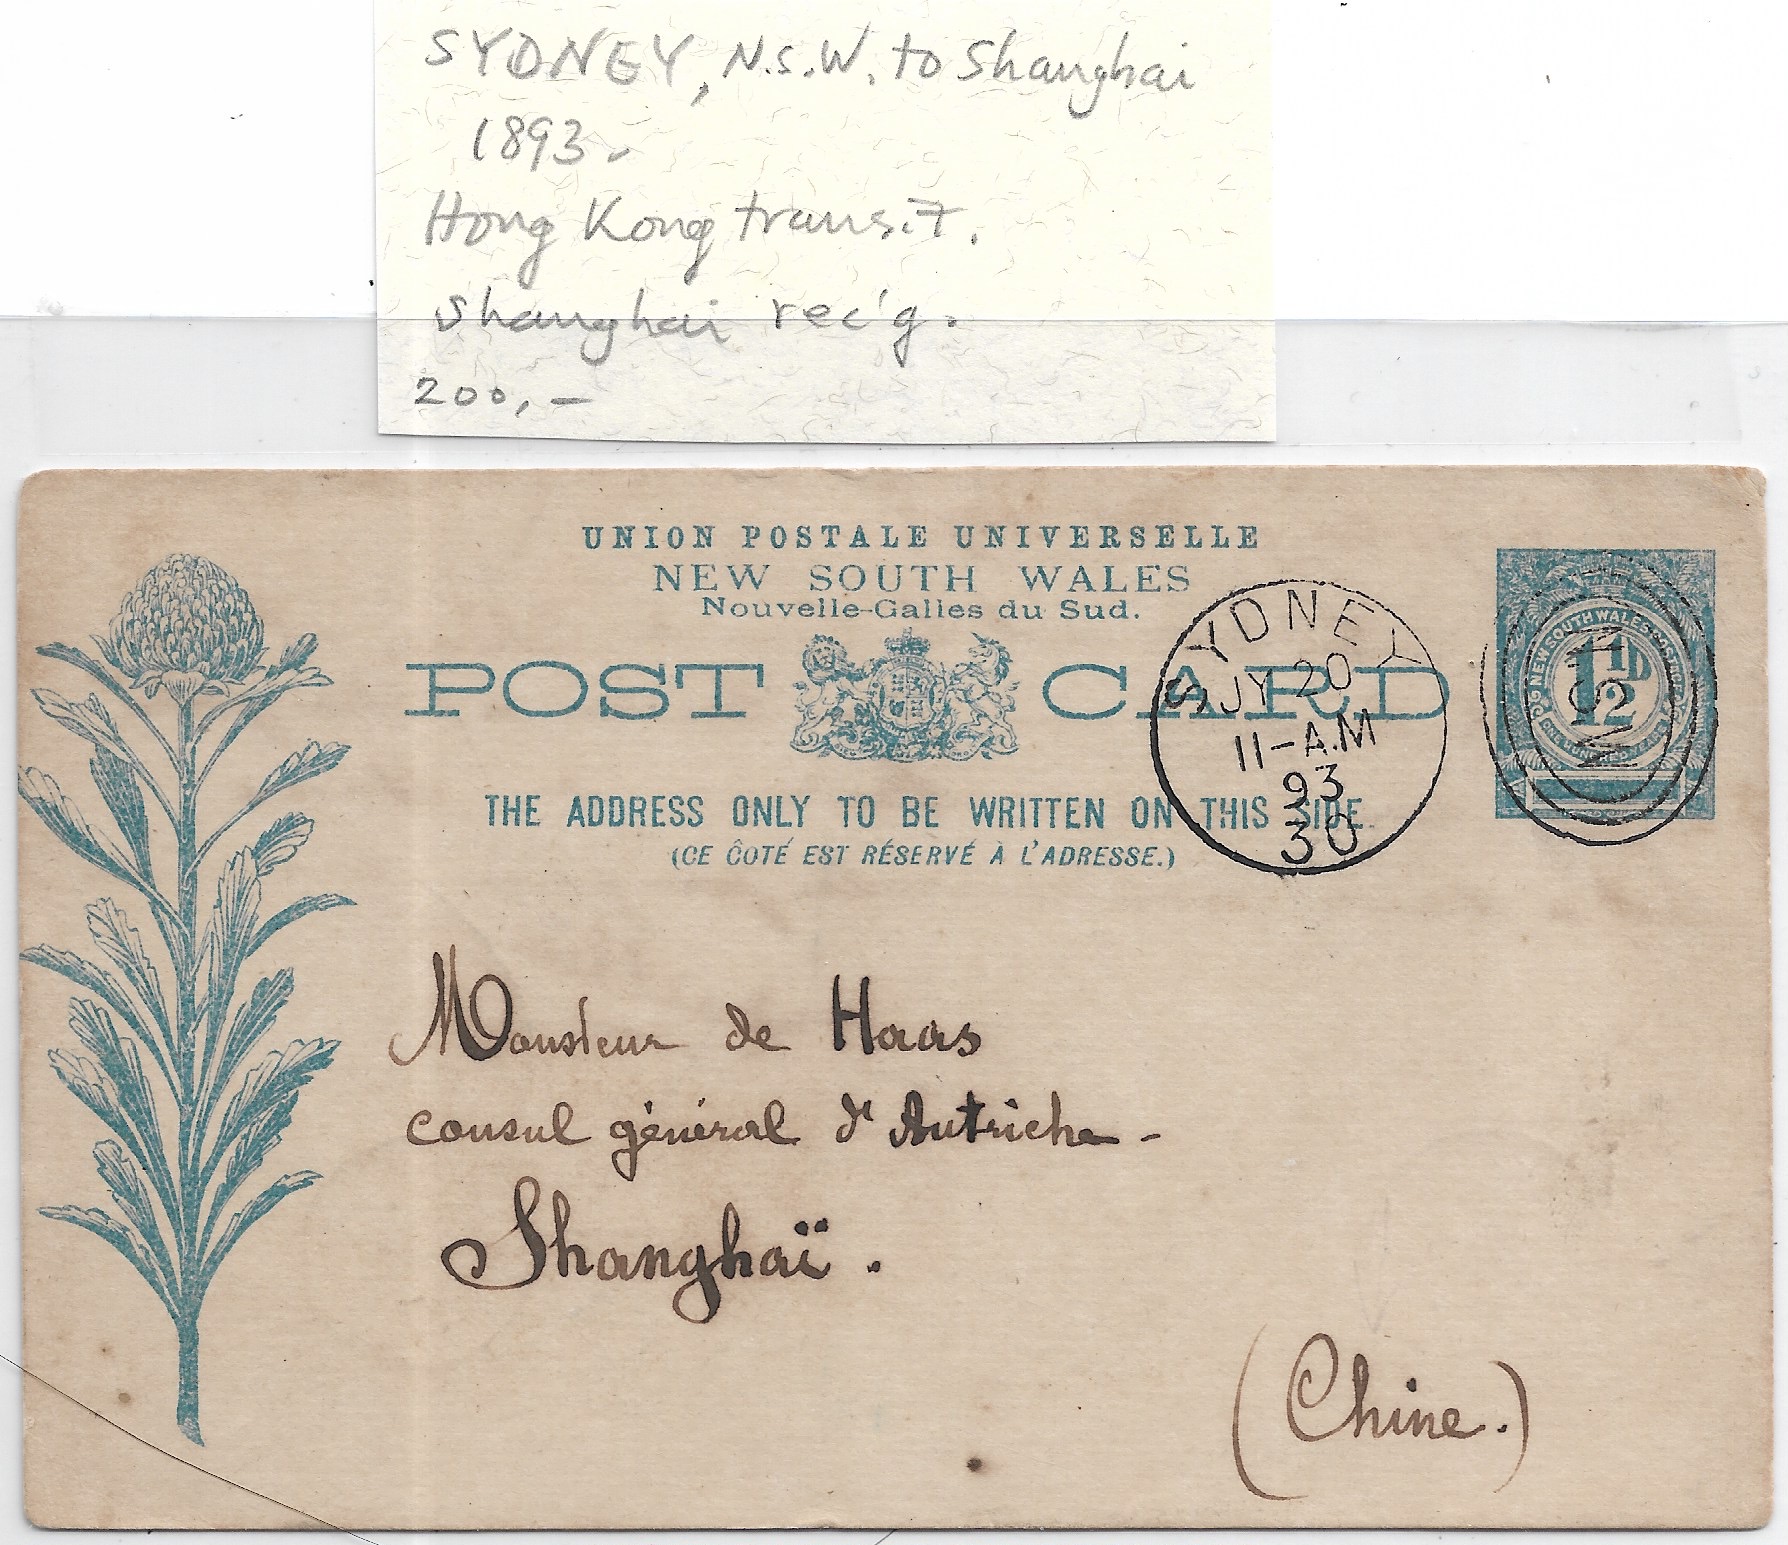 SYDNEY, N.S.W. to Shanghai
1893 -
Hong Kong transit.
Shanghai rec'g.
200,-
UNION POSTALE UNIVERSELLE
NEW SOUTH WALES
Nouvelle-Galles du Sud.
POST CARD
THE ADDRESS ONLY TO BE WRITTEN ON THIS SIDE.
(CE CÔTÉ EST RÉSERVÉ À L'ADRESSE.)
SYDNEY
JY 20
11-A.M
93
30
NEW SOUTH WALES POSTAGE
1 1/2 D
N.S.W
Monsieur de Haas
consul général d'Autriche -
Shanghaï.
(Chine.)